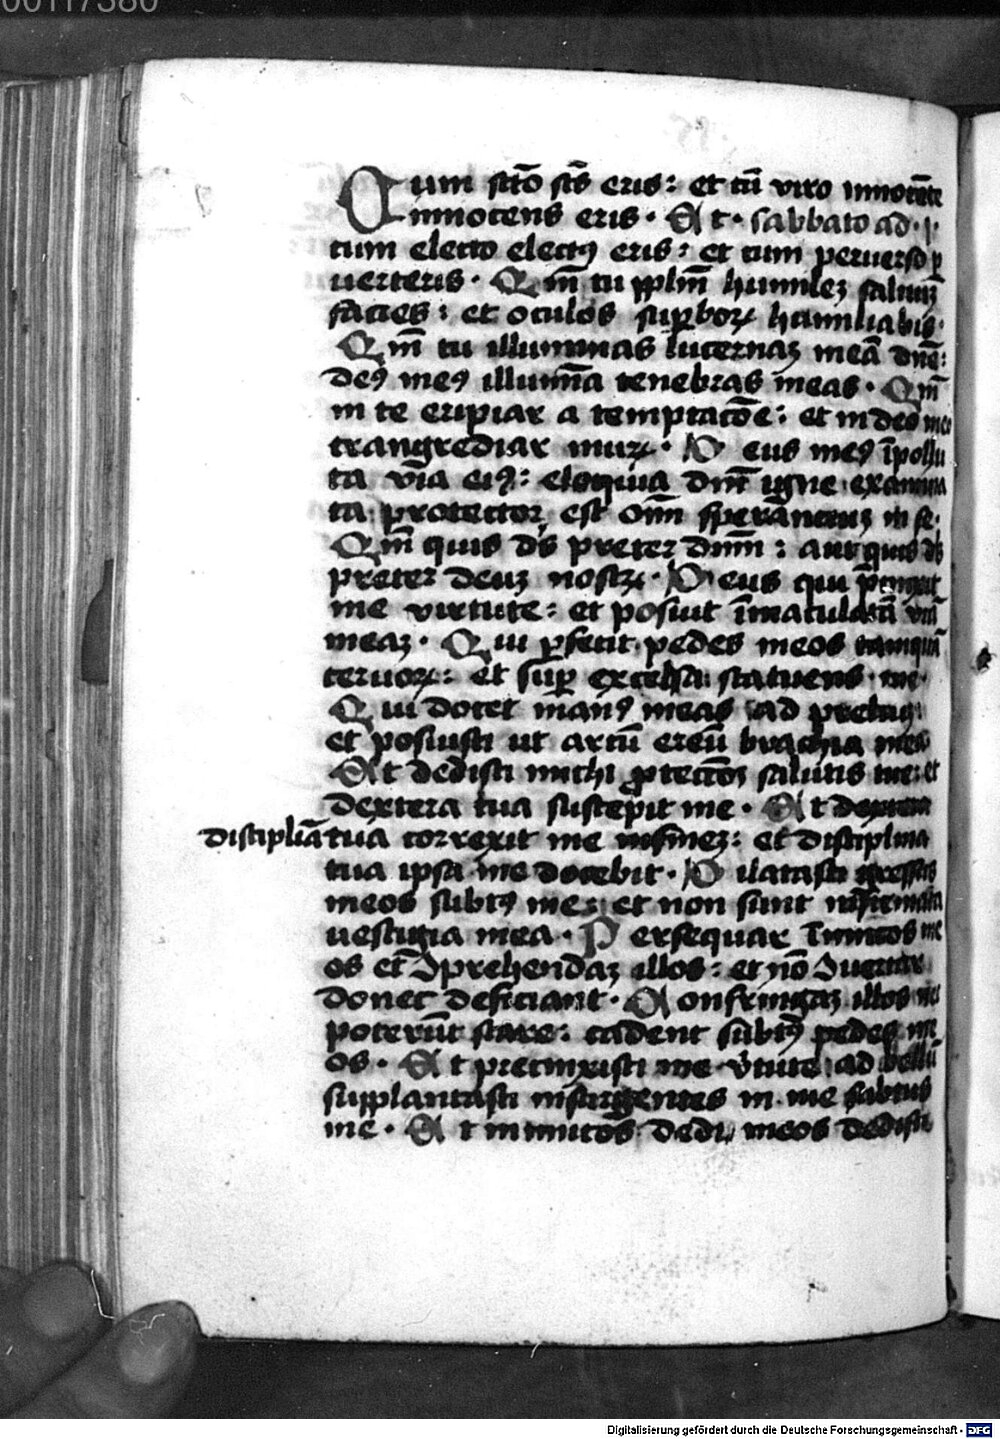 00117380
Cum scto scs eris: et cu viro innocete
innocens eris. Et. sabbato ad. p.
Cum electo elect9 eris: et cum perverso p
verteris. Qm tu pplm humilez saluuz
facies: et oculos supboꝝ humiliabis.
Qm tu illuminas lucernaz mea dne:
de9 me9 illumina tenebras meas. Qm
in te eripiar a temptacoe: et in deo meo
trangrediar muꝝ. Deus me9 ipollu
ta via ei9: eloquia dni igne examina
ta protector est oim speranciuz in se.
Qm quis ds preter dnm: aut quis ds
preter deuz nostꝝ. Deus qui pcinxit
me virtute: et posuit imaculata via
meaz. Qui pfecit pedes meos tamqua
ceruoꝝ: et sup excelsa statuens me.
Qui docet man9 meas ad preliuz
et posuisti ut arcu ereu brachia mea
Et dedisti michi ptectioz salutis tue: et
dextera tua suscepit me. Et dextera
disciplia tua correxit me in finez: et disciplina
tua ipsa me docebit. Dilatasti gressus
meos subt9 me: et non sunt infirmata
vestigia mea. Persequar inimicos me
os et 9prehendaz illos: et no 9uertar
donec deficiant. Confringaz illos nec
poterut stare: cadent subt9 pedes me
os. Et precinxisti me vtute ad bellu
supplantasti insurgentes in me subtus
me. Et inimicos dedi meos dedisti
Digitalisierung gefördert durch die Deutsche Forschungsgemeinschaft - DFG